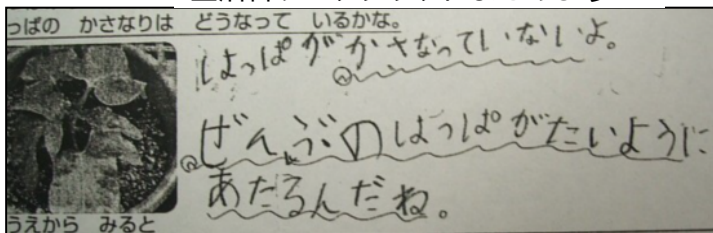 っぱの かさなりは どうなって いるかな。
はっぱが かさなっていないよ。
ぜんぶのはっぱがたいように
あたるんだね。
うえから みると